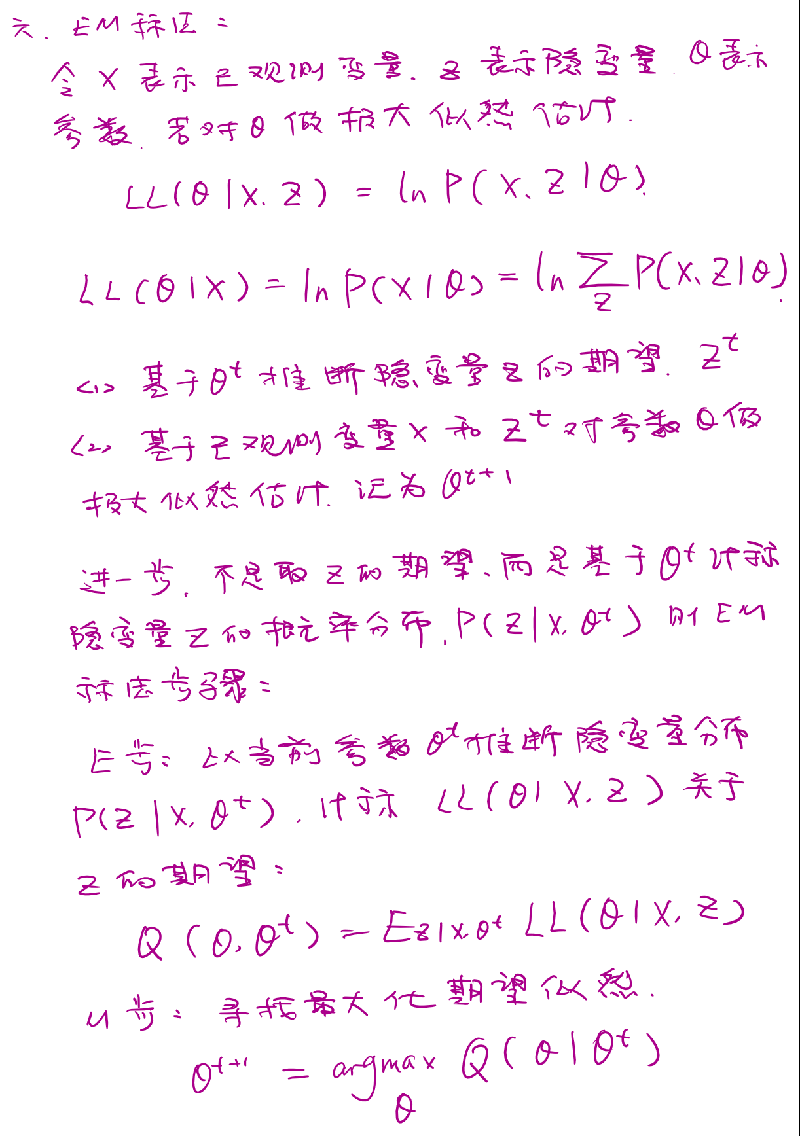 六. EM算法:
令 X 表示已观测变量. Z 表示隐变量 θ表示
参数. 若对 θ 做极大似然估计.
LL(θ|X.Z) = ln P(X.Z|θ).
LL(θ|X) = ln P(X|θ) = ln ∑_Z P(X.Z|θ).
<1> 基于θ^t 推断隐变量 Z 的期望. Z^t
<2> 基于已观测变量 X 和 Z^t 对参数 θ 做
极大似然估计. 记为 θ^{t+1}
进一步, 不是取 Z 的期望、而是基于 θ^t 计算
隐变量 Z 的概率分布. P(Z|X.θ^t) 则 EM
算法步骤:
E步: 以当前参数 θ^t 推断隐变量分布
P(Z|X.θ^t). 计算 LL(θ|X.Z) 关于
Z 的期望:
Q(θ.θ^t) = E_{Z|X.θ^t} LL(θ|X.Z)
M步: 寻找最大化期望似然.
θ^{t+1} = argmax_θ Q(θ|θ^t)